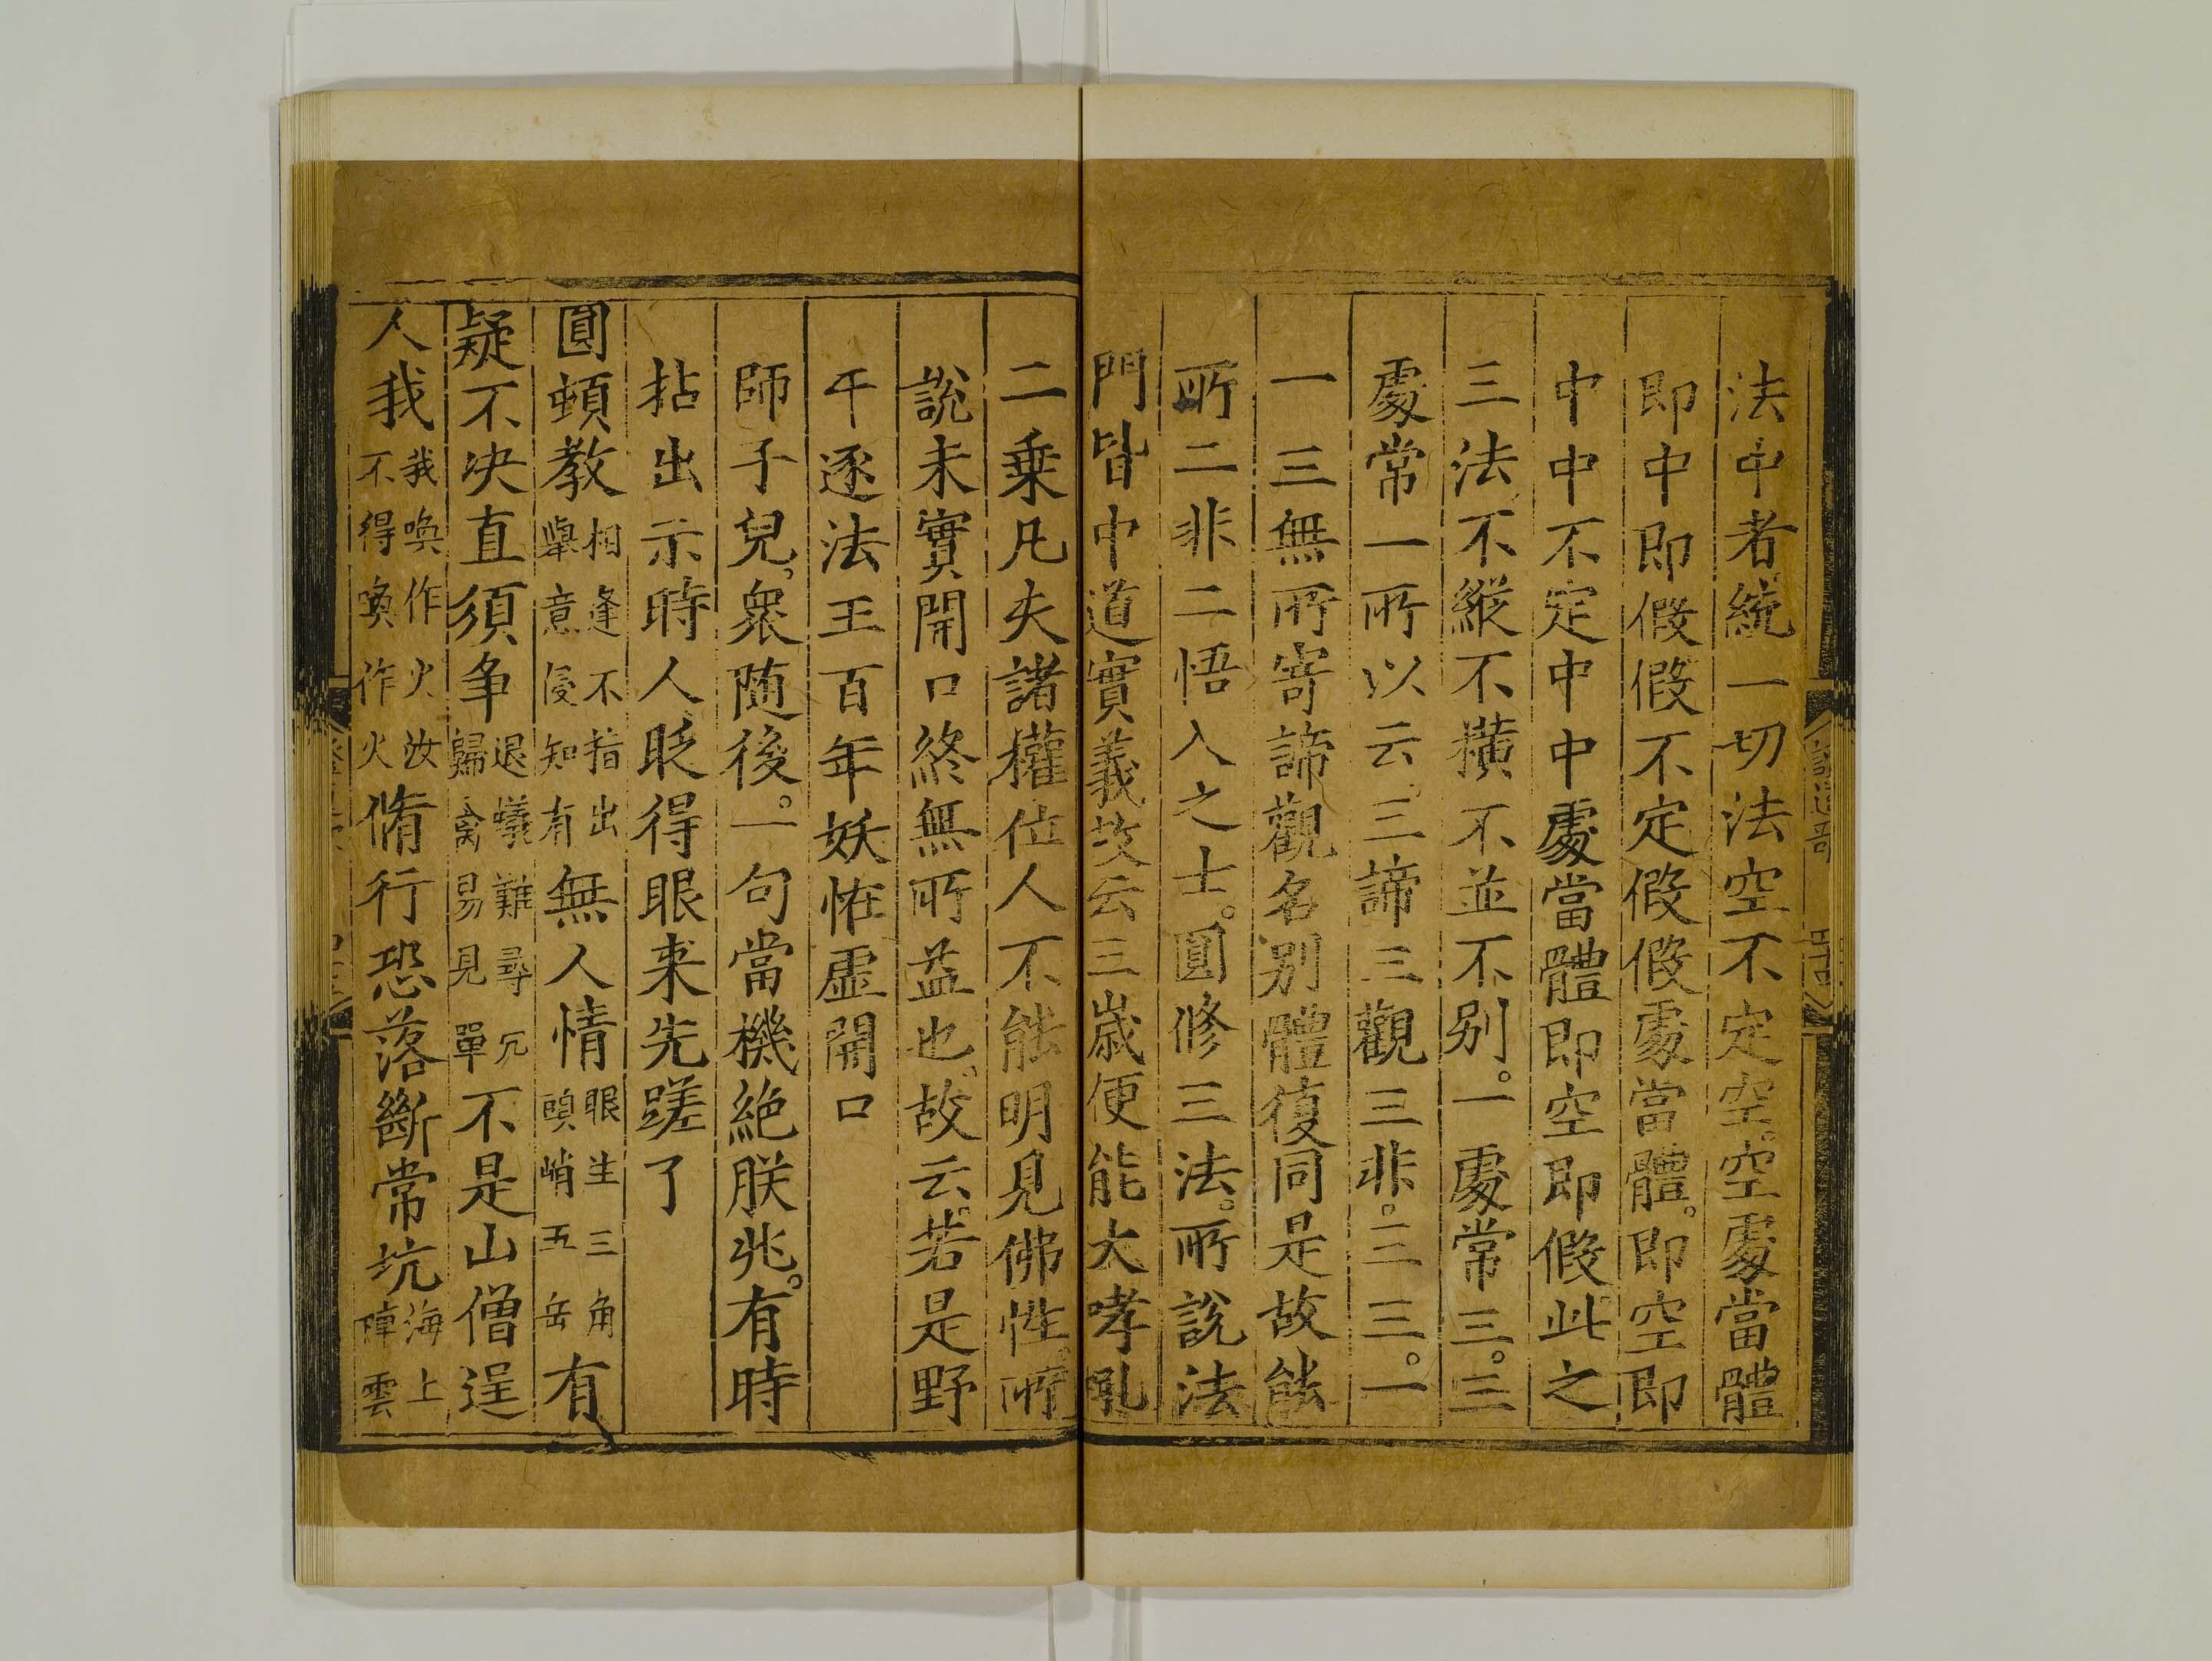 法中者統一切法空不定空。空處當體
即中即假假不定假假處當體。即空即
中中不定中中處當體即空即假。此之
三法不縱不橫不並不别。一處常三。三
處常一所以云三諦三觀三非。三三。一
一三無所寄諦觀名别體復同是故能
所二非二悟入之士。圓修三法。所說法
門皆中道實義故云三歲便能大哮吼
二乗凡夫諸權位人不能明見佛性。所
說未實開口終無所益也。故云。若是野
干逐法王百年妖怪虛開口
師子兒。衆随後。一句當機絶朕兆。有時
拈出示時人眨得眼来先蹉了
圓頓教相逢不指出舉意便知有無人情眼生三角頭峭五岳有
疑不决直須争退犠難尋冗歸禽易見單不是山僧逞
人我我喚作火汝不得喚作火脩行恐落斷常坑海上陣雲